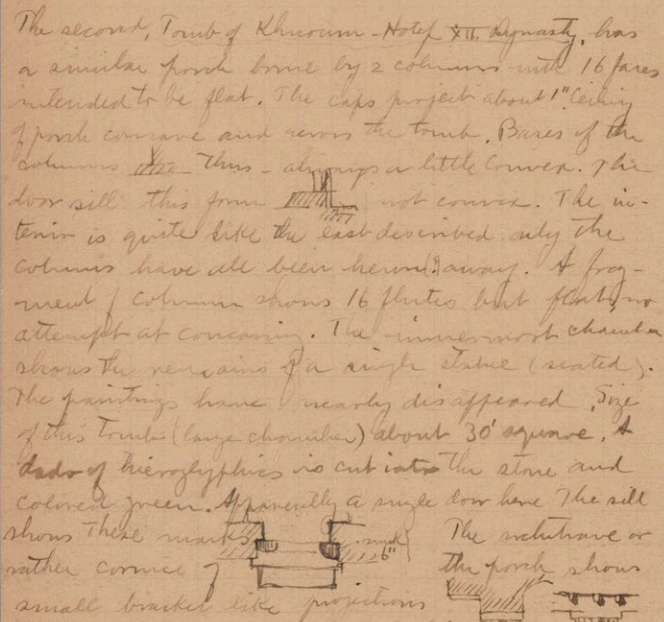 The second, Tomb of Khnoum-Hotep XII. Dynasty, has
a similar porch borne by 2 columns with 16 faces
intended to be flat. The caps project about 1" Ceiling
of porch concave and across the tomb. Bases of the
columns thus - always a little convex. The
door sill this form not convex. The in-
terior is quite like the last described only the
columns have all been hewn(?) away. A frag-
ment of column shows 16 flutes but flat, no
attempt at concaving. The innermost chamber
shows the remains of a single statue (seated).
The paintings have nearly disappeared. Size
of this tomb (large chamber) about 30' square. A
dado of hieroglyphics is cut into the stone and
colored green. Apparently a single door here The sill
shows these marks 6" The architrave or
rather cornice of the porch shows
small bracket like projections